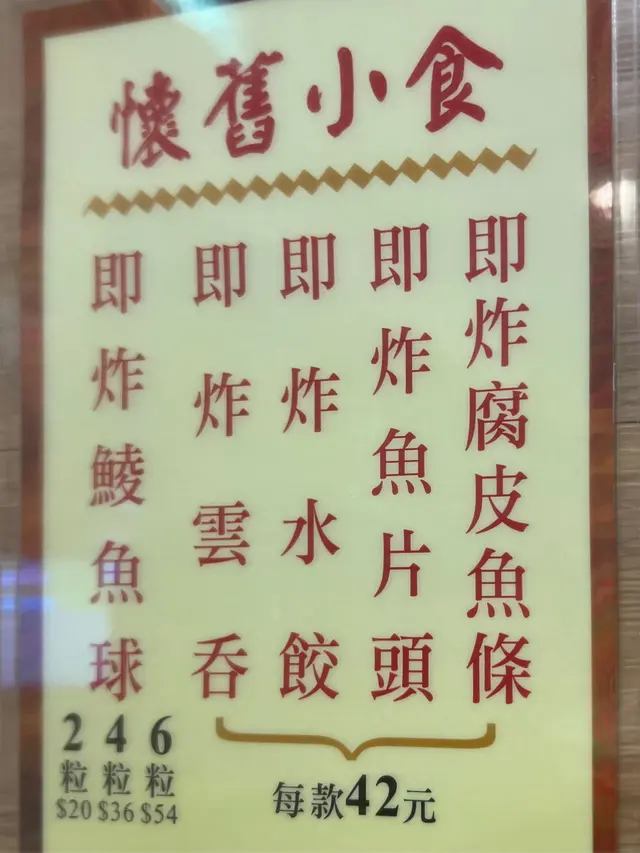 懷舊小食
即炸腐皮魚條
即炸魚片頭
即炸水餃
即炸雲吞
即炸鯪魚球
每款42元
2粒$20
4粒$36
6粒$54